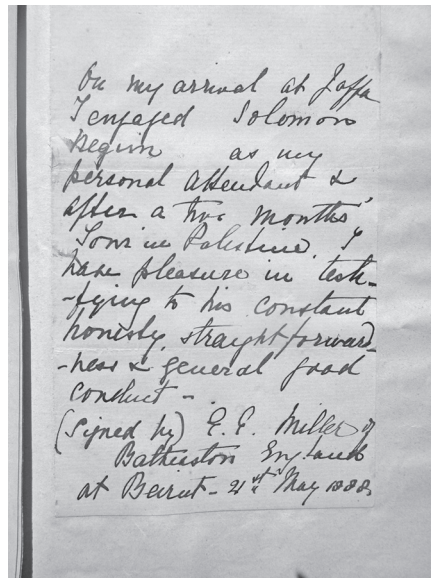 On my arrival at Jaffa
I engaged Solomon
Negim as my
personal attendant &
after a two months'
Tour in Palestine, I
have pleasure in testi-
-fying to his constant
honesty, straightforward-
-ness & general good
conduct -
(signed by) E. E. Miller of
Batheaston England
at Beirut - 21st May 1888